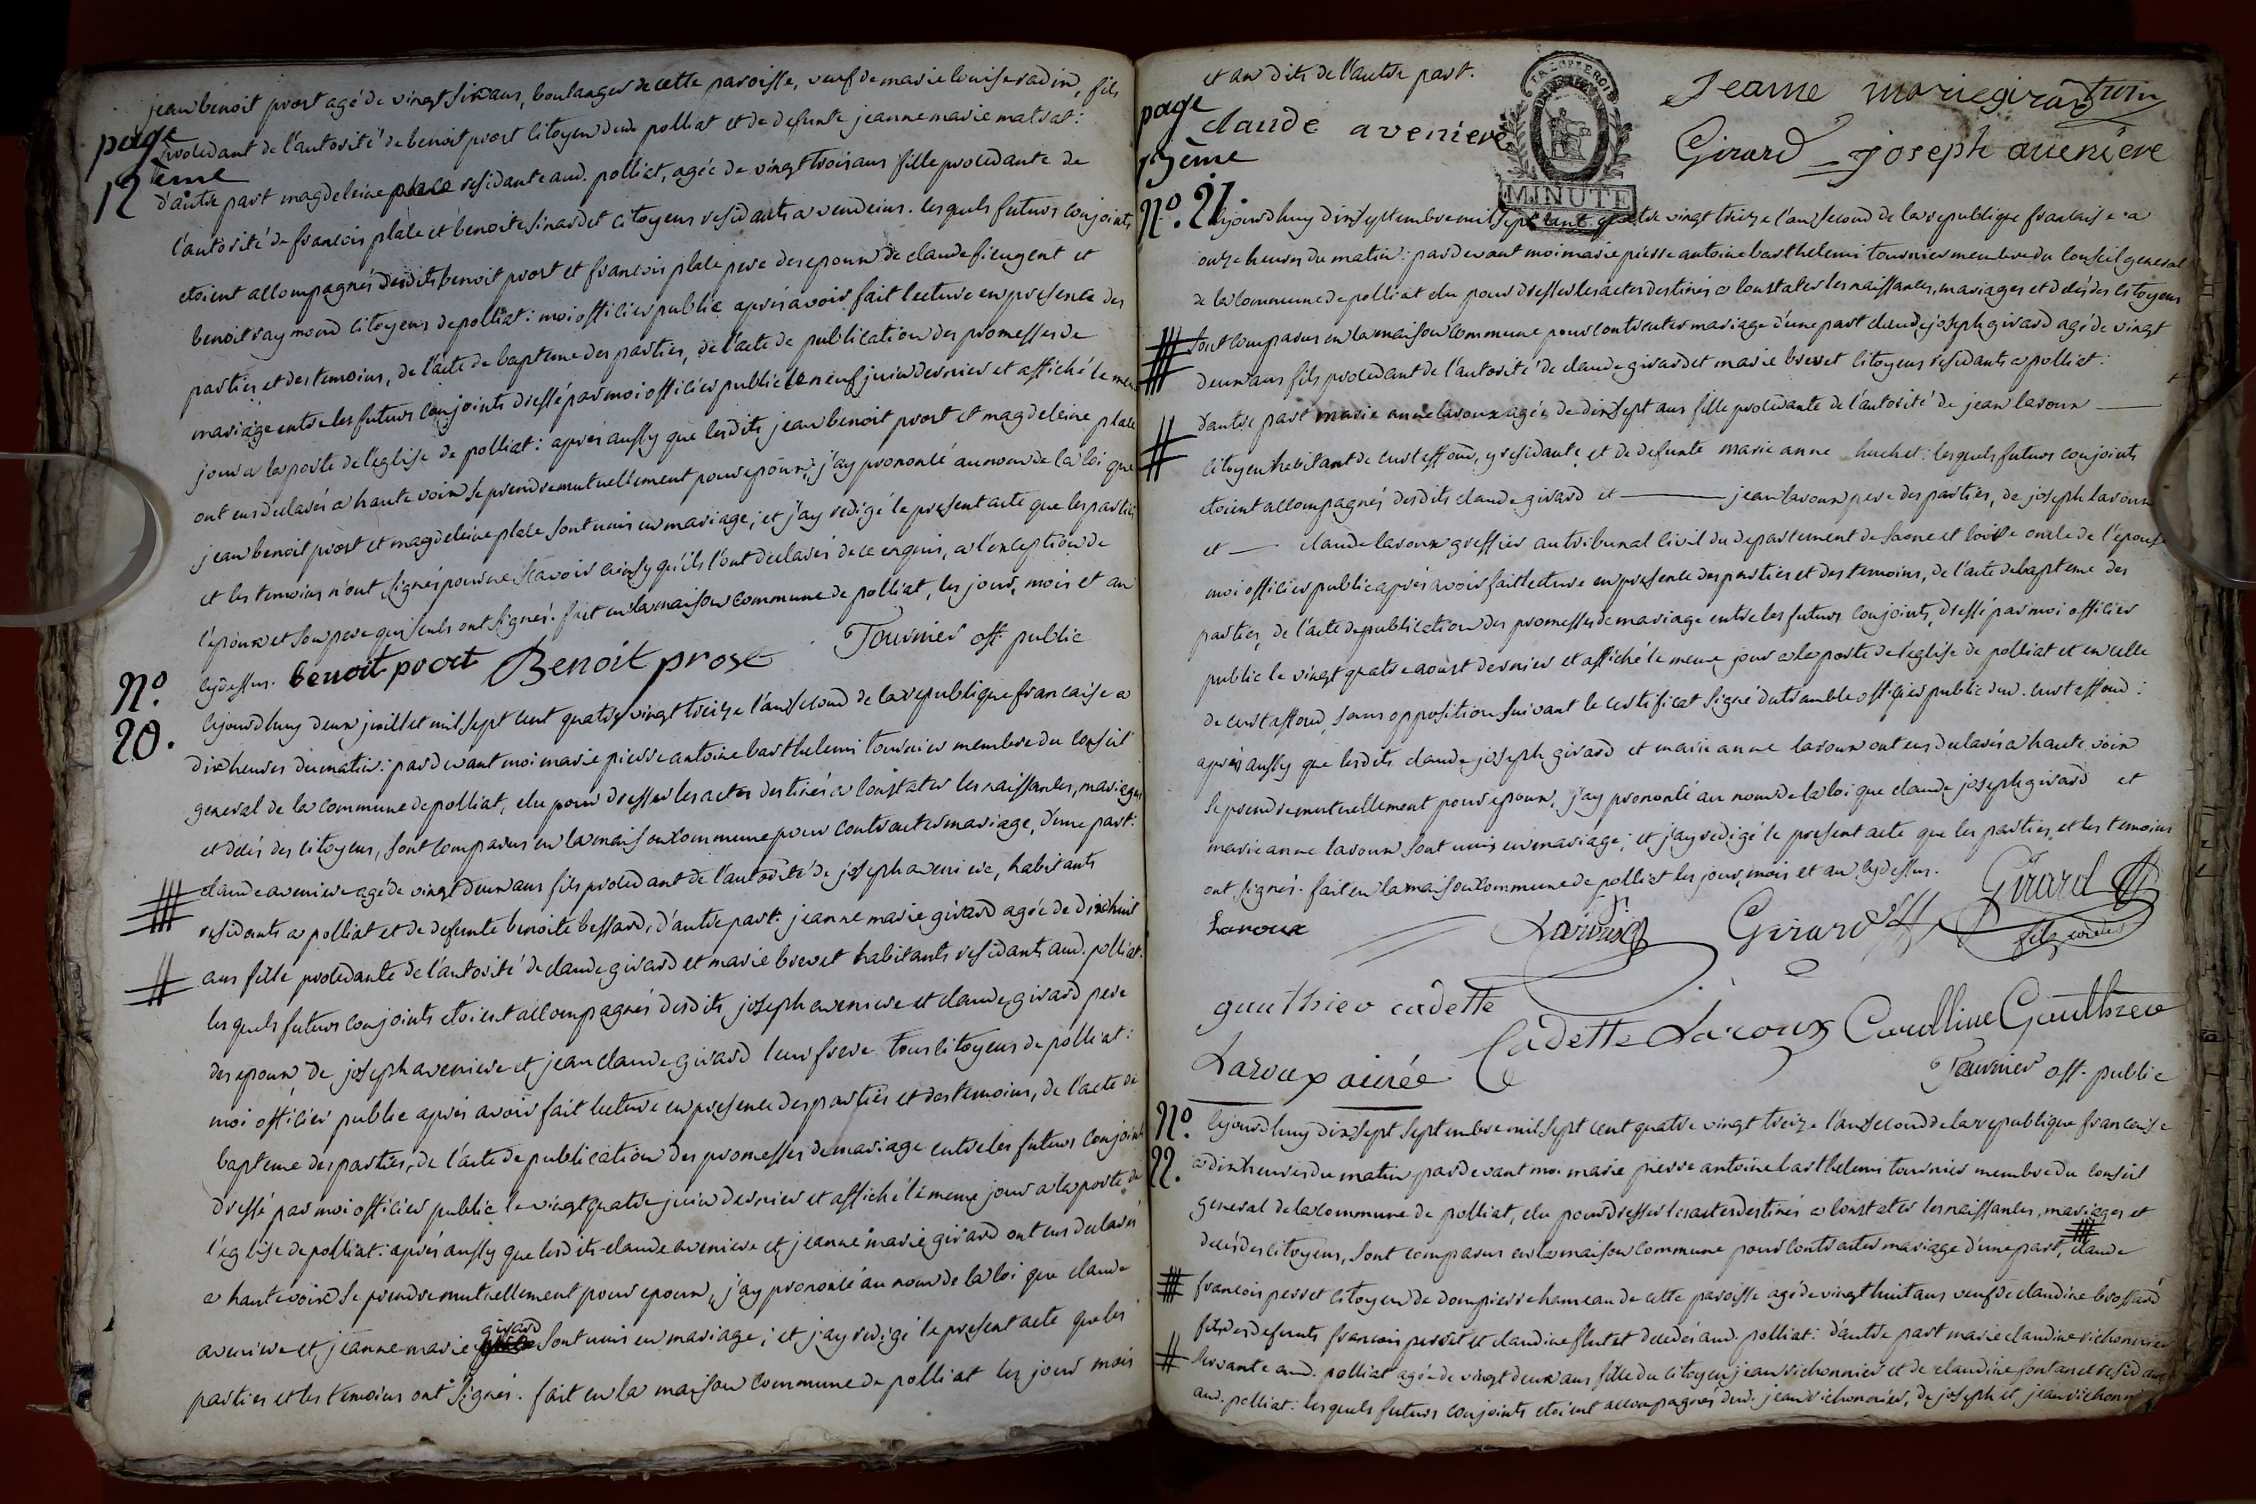 jean benoit prost agé de vingt six ans, boulanger de cette paroisse, veuf de marie louise radin, fils
page
procedant de l'autorité de benoit prost citoyen dud. polliat et de defunte jeanne marie matrat:
12 eme
d'autre part magdeleine place residante aud. polliat, agée de vingt trois ans fille procedante de
l'autorité de francois place et benoite sinardet citoyens residants a vendeins. lesquels futurs conjoints
etoient accompagnés desdits benoit prost et francois place pere des epoux de claude fieugent et
benoit raymond citoyens de polliat: moi officier public après avoir fait lecture en presence des
parties et des temoins, de l'acte de bapteme des parties, de l'acte de publication des promesses de
mariage entre les futurs conjoints dressé par moi officier public le neuf juin dernier et affiché le meme
jour a la porte de l'eglise de polliat: après aussy que lesdits jean benoit prost et magdeleine place
ont eus declarés a haute voix se prendre mutuellement pour epoux, j'ay prononcé au nom de la loi que
jean benoit prost et magdeleine place sont unis en mariage; et j'ay redigé le present acte que les parties
et les temoins n'ont signés pour ne scavoir ainsy qu'ils l'ont declarés de ce enquis, a l'exception de
l'epoux et son pere qui seuls ont signés. fait en la maison commune de polliat, les jour, mois et an
cydessus. benoit prost Benoit prost Tournier off. public
N.o
20.
cejourdhuy deux juillet mil sept cent quatre vingt treize l'an second de la republique francaise a
dix heures du matin: pardevant moi marie pierre antoine barthelemi tournier membre du conseil
general de la commune de polliat, elu pour dresser les actes destinés a constater les naissances, mariages
et décés des citoyens, sont comparus en la maison commune pour contracter mariage, d'une part:
claude aveniere agé de vingt deux ans fils procedant de l'autorité de joseph aveniere, habitants
residants a polliat et de defunte benoite bessard, d'autre part: jeanne marie girard agée de dixhuit
ans fille procedante de l'autorité de claude girard et marie brevet habitants residants aud. polliat.
lesquels futurs conjoints etoient accompagnés desdits joseph aveniere et claude girard pere
des epoux, de joseph aveniere et jean claude girard leur frere tous citoyens de polliat:
moi officier public après avoir fait lecture en presence des parties et des temoins, de l'acte de
bapteme des parties, de l'acte de publication des promesses de mariage entre les futurs conjoints
dressé par moi officier public le vingt quatre juin dernier et affiché le meme jour a la porte de
l'eglise de polliat: après aussy que lesdits claude aveniere et jeanne marie girard ont eus declarés
a haute voix se prendre mutuellement pour epoux, j'ay prononcé au nom de la loi que claude
girard
aveniere et jeanne marie sont unis en mariage; et j'ay redigé le present acte que les
parties et les temoins ont signés. fait en la maison commune de polliat les jour mois
et an dits de l'autre part.
page
13eme
claude aveniere
LA LOI ET LE ROI
MINUTE
Jeanne marie girard
Girard joseph aveniere
N.o 21.
cejourdhuy dix septembre mil sept cent quatre vingt treize l'an second de la republique francaise a
onze heures du matin: pardevant moi marie pierre antoine barthelemi tournier membre du conseil general
de la commune de polliat elu pour dresser les actes destinés a constater les naissances, mariages et décés des citoyens
sont comparus en la maison commune pour contracter mariage d'une part claude joseph girard agé de vingt
deux ans fils procedant de l'autorité de claude girard et marie brevet citoyens residants a polliat:
d'autre part marie anne laroux agée de dix sept ans fille procedante de l'autorité de jean laroux
citoyen habitant de curtaffond, y residante et de defunte marie anne huchet: lesquels futurs conjoints
etoient accompagnés desdits claude girard et jean laroux pere des parties, de joseph laroux
et claude laroux greffier au tribunal civil du departement de saone et loire oncle de l'epouse
moi officier public après avoir fait lecture en presence des parties et des temoins, de l'acte de bapteme des
parties, de l'acte de publication des promesses de mariage entre les futurs conjoints, dressé par moi officier
public le vingt quatre aoust dernier et affiché le meme jour a la porte de l'eglise de polliat et en celle
de curtaffond, sans opposition suivant le certificat signé officier public dud. curtaffond:
après aussy que lesdits claude joseph girard et marie anne laroux ont eus declarés a haute voix
se prendre mutuellement pour epoux, j'ay prononcé au nom de la loi que claude joseph girard et
marie anne laroux sont unis en mariage; et j'ay redigé le present acte que les parties et les temoins
ont signés. fait en la maison commune de polliat les jour, mois et an cydessus.
Laroux Laroux Girard Girard
gauthier cadette
Cadette Laroux Caroline Gauthier
Laroux ainée
Tournier off. public
N.o
22.
cejourdhuy dix sept septembre mil sept cent quatre vingt treize l'an second de la republique francaise
a dix heures du matin pardevant moi marie pierre antoine barthelemi tournier membre du conseil
general de la commune de polliat, elu pour dresser les actes destinés a constater les naissances, mariages et
décés des citoyens, sont comparus en la maison commune pour contracter mariage d'une part, claude
francois perret citoyen de dompierre hameau de cette paroisse agé de vingt huit ans veuf de claudine brossard
fils des defunts francois perret et claudine flutet decedés aud. polliat: d'autre part marie claudine richonnier
servante aud. polliat agée de vingt deux ans fille du citoyen jean richonnier et de claudine fontanet
aud. polliat: lesquels futurs conjoints etoient accompagnés dud. jean richonnier, de joseph et jean richonnier